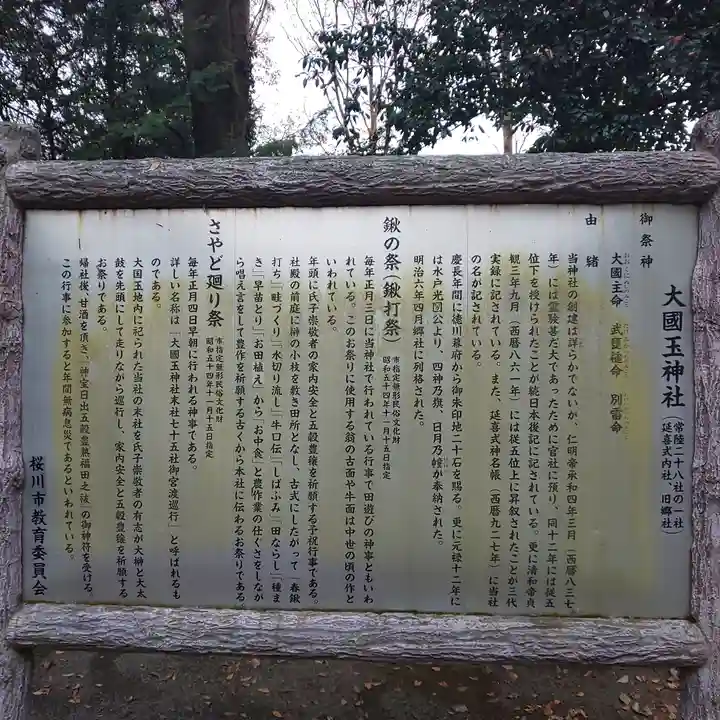 大國玉神社
(常陸二十八社の一社
延喜式内社、旧郷社)
御祭神
大國主命 武甕槌命 別雷命
由緒
当神社の創建は詳らかでないが、仁明帝承和四年三月(西暦八三七
年)には霊験甚だ大であったために官社に預り、同十二年には従五
位下を授けられたことが続日本後記に記されている。更に清和帝貞
観三年九月(西暦八六一年)には従五位上に昇叙されたことが三代
実録に記されている。また、延喜式神名帳(西暦九二七年)に当社
の名が記されている。
慶長年間に徳川幕府から御朱印地二十石を賜る。更に元禄十二年に
は水戸光圀公より、四神乃旗、日月乃幢が奉納された。
明治六年四月郷社に列格された。
鍬の祭(鍬打祭)
市指定無形民俗文化財
昭和五十四年十一月十五日指定
毎年正月三日に当神社で行われている行事で田遊びの神事ともいわ
れている。このお祭りに使用する翁の古面や牛面は中世の頃の作と
いわれている。
年頭に氏子崇敬者の家内安全と五穀豊穣を祈願する予祝行事である。
社殿の前庭に榊の小枝を敷き田所となし、古式にしたがって「春鍬
打ち」「畦づくり」「水切り流し」「牛口伝」「しばふみ」「田ならし」「種ま
き」「早苗とり」「お田植え」から「お中食」と農作業の仕ぐさをしなが
ら唱え言をして豊作を祈願する古くから本社に伝わるお祭りである。
さやど廻り祭
市指定無形民俗文化財
昭和五十四年十一月十五日指定
毎年正月四日早朝に行われる神事である。
詳しい名称は「大國玉神社末社七十五社御宮渡巡行」と呼ばれるも
のである。
大国玉地内に祀られた当社の末社を氏子崇敬者の有志が大榊と大太
鼓を先頭にして走りながら巡行し、家内安全と五穀豊穣を祈願する
お祭りである。
帰社後、甘酒を頂き、「神宝日出五穀豊熟福田之祓」の御神符を受ける。
この行事に参加すると年間無病息災であるといわれている。
桜川市教育委員会